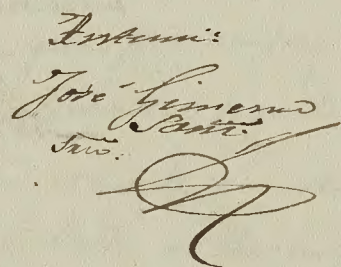 Antemi:
José Gimeno
Srio.